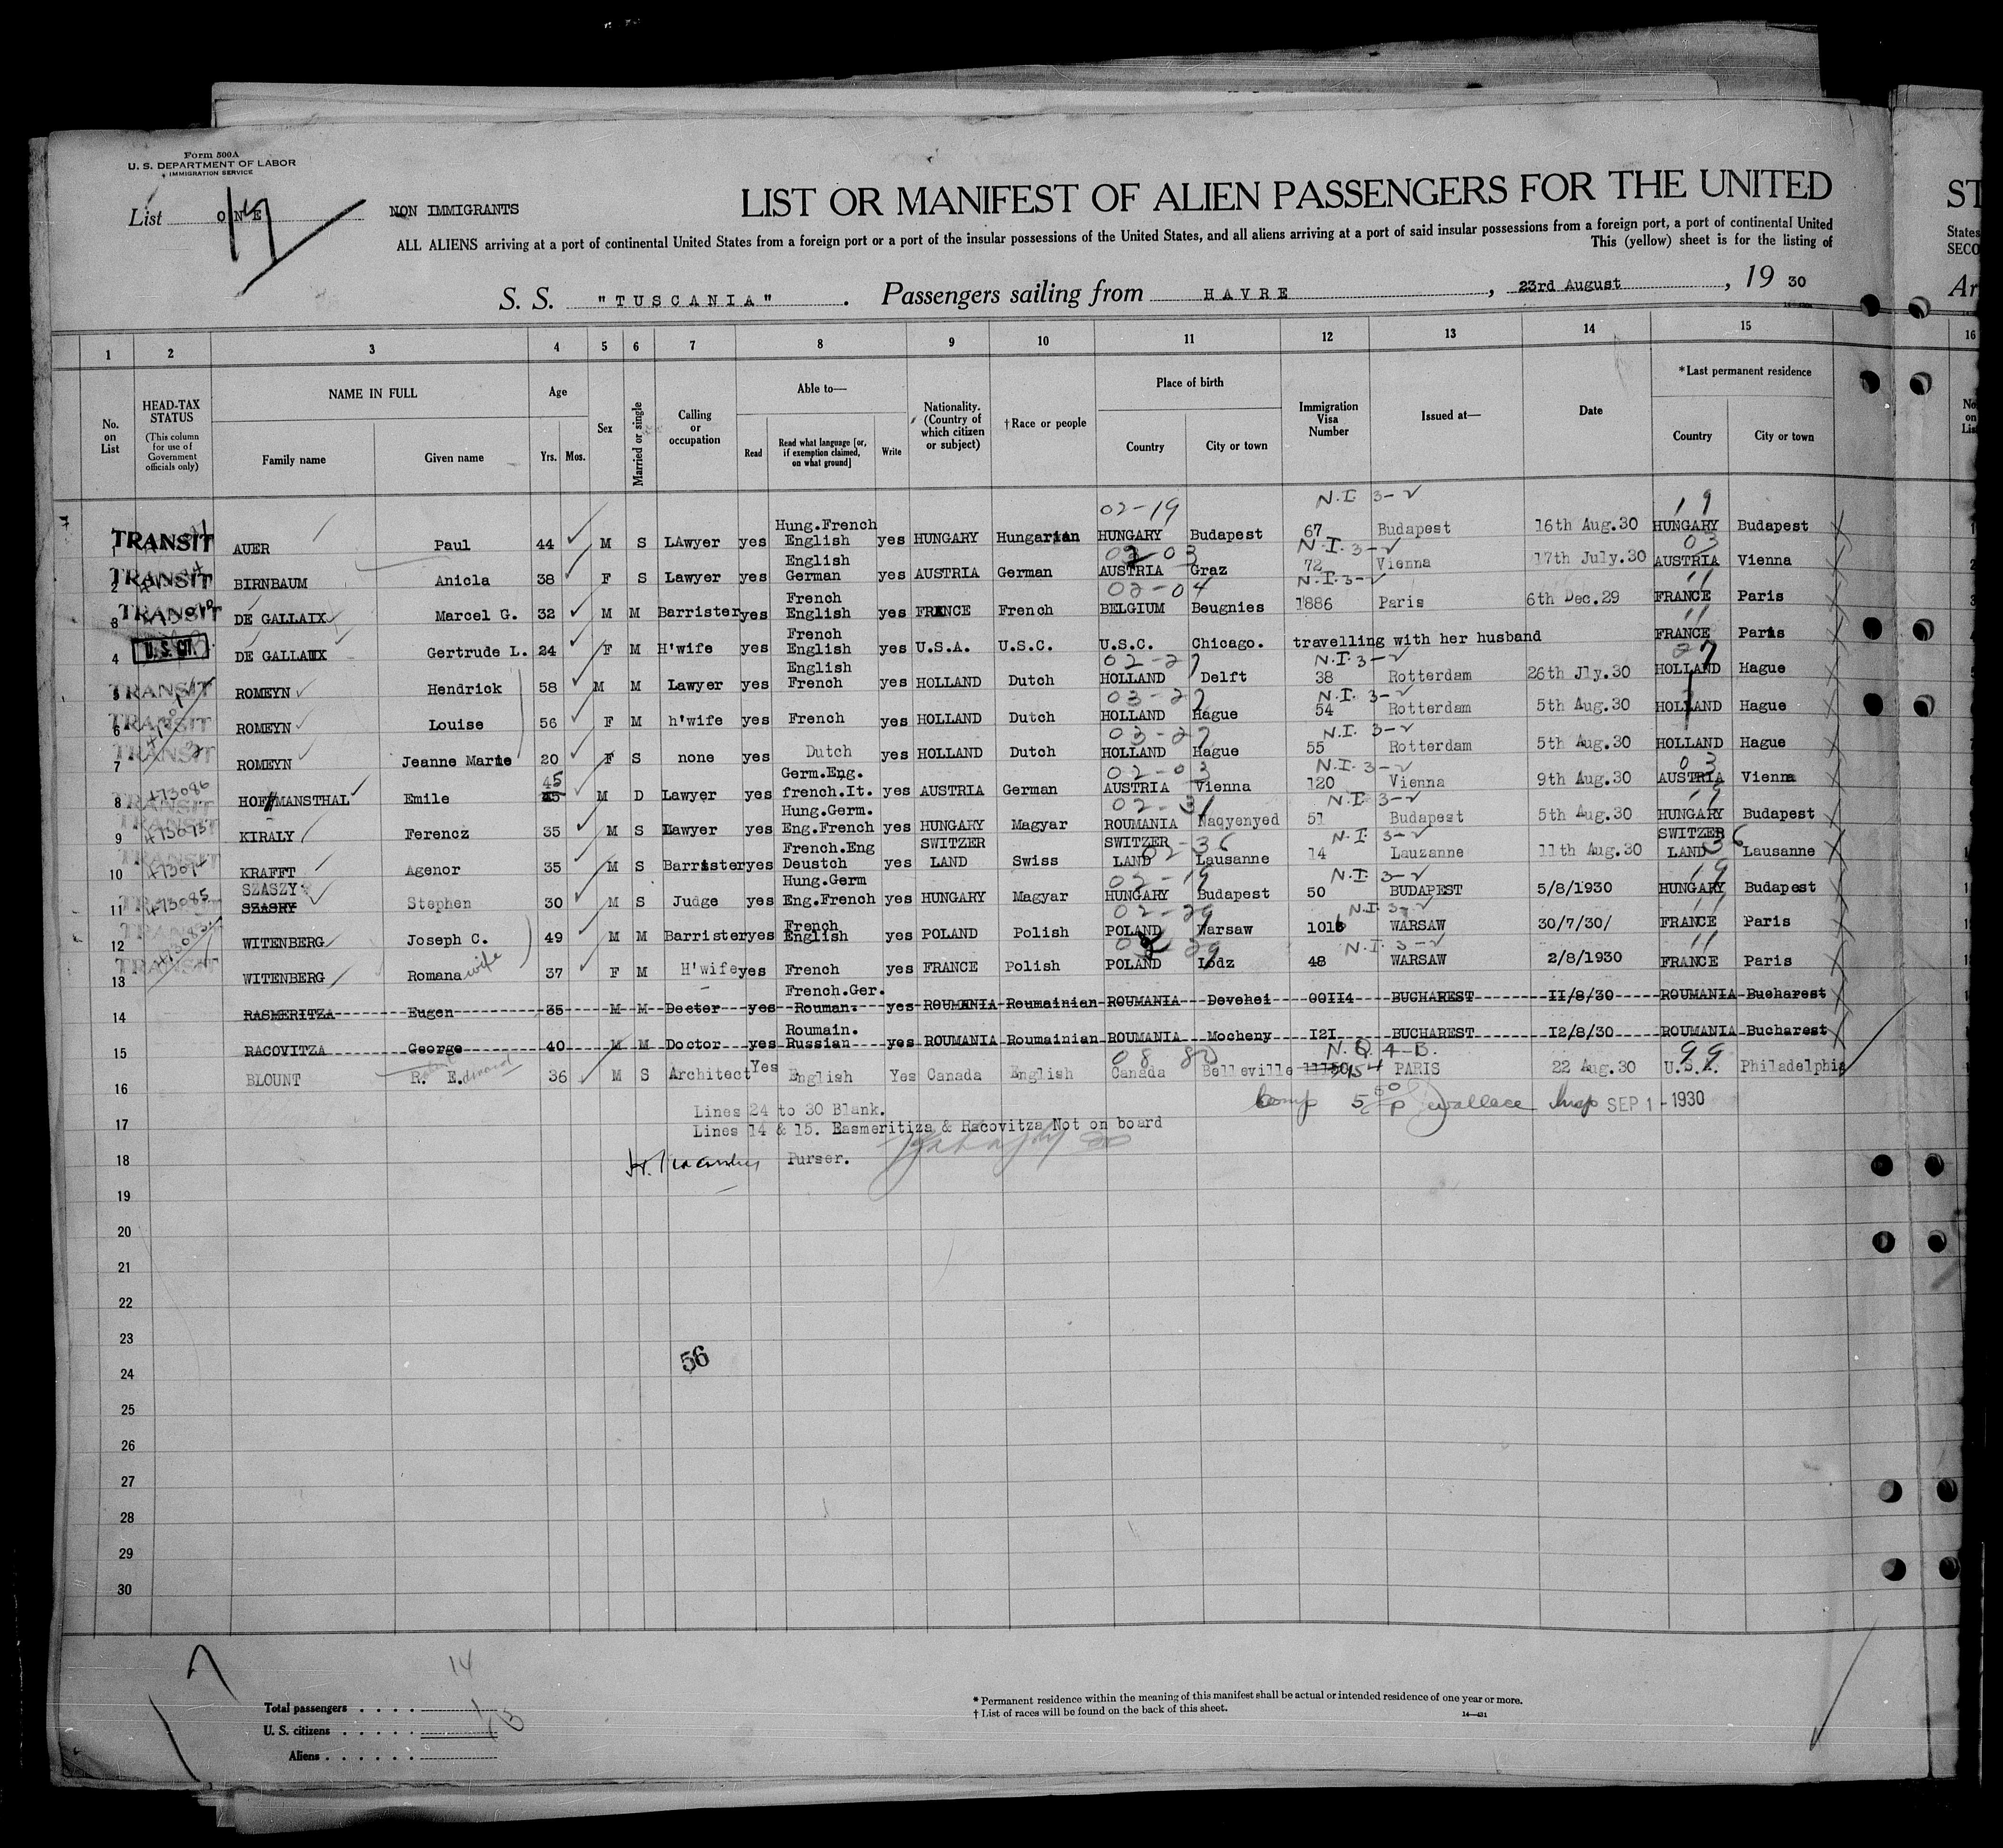 Form 500A
U. S. DEPARTMENT OF LABOR
IMMIGRATION SERVICE
List ONE
NON IMMIGRANTS
LIST OR MANIFEST OF ALIEN PASSENGERS FOR THE UNITED
ALL ALIENS arriving at a port of continental United States from a foreign port or a port of the insular possessions of the United States, and all aliens arriving at a port of said insular possessions from a foreign port, a port of continental United
This (yellow) sheet is for the listing of
S. S. "TUSCANIA". Passengers sailing from HAVRE, 23rd August, 19 30
1 2 3 4 5 6 7 8 9 10 11 12 13 14 15 16
No. on List
HEAD-TAX STATUS
(This column for use of Government officials only)
NAME IN FULL
Family name
Given name
Age
Yrs. Mos.
Sex
Married or single
Calling or occupation
Able to—
Read
Read what language [or, if exemption claimed, on what ground]
Write
Nationality. (Country of which citizen or subject)
†Race or people
Place of birth
Country
City or town
Immigration Visa Number
Issued at—
Date
*Last permanent residence
Country
City or town
02-19 N.I. 3-2 19
1 TRANSIT AUER Paul 44 M S LAwyer yes Hung.French English yes HUNGARY Hungarian HUNGARY Budapest 67 Budapest 16th Aug.30 HUNGARY Budapest
02-03 N.I. 3-2 03
2 TRANSIT BIRNBAUM Anicla 38 F S Lawyer yes English German yes AUSTRIA German AUSTRIA Graz 72 Vienna 17th July.30 AUSTRIA Vienna
02-04 N.I. 3-2 11
3 TRANSIT DE GALLAIX Marcel G. 32 M M Barrister yes French English yes FRANCE French BELGIUM Beugnies 1886 Paris 6th Dec.29 FRANCE Paris
11
4 U.S. CIT. DE GALLAIX Gertrude L. 24 F M H'wife yes French English yes U.S.A. U.S.C. U.S.C. Chicago. travelling with her husband FRANCE Paris
02-27 N.I. 3-2 27
5 TRANSIT ROMEYN Hendrick 58 M M Lawyer yes English French yes HOLLAND Dutch HOLLAND Delft 38 Rotterdam 26th Jly.30 HOLLAND Hague
03-27 N.I. 3-2
6 TRANSIT ROMEYN Louise 56 F M h'wife yes French yes HOLLAND Dutch HOLLAND Hague 54 Rotterdam 5th Aug.30 HOLLAND Hague
03-27 N.I. 3-2
7 TRANSIT ROMEYN Jeanne Marie 20 F S none yes Dutch yes HOLLAND Dutch HOLLAND Hague 55 Rotterdam 5th Aug.30 HOLLAND Hague
02-03 N.I. 3-2 03
8 473086 TRANSIT HOFFMANSTHAL Emile 45 M D Lawyer yes Germ.Eng. french.It. yes AUSTRIA German AUSTRIA Vienna 120 Vienna 9th Aug.30 AUSTRIA Vienna
02-31 N.I. 3-2 19
9 TRANSIT KIRALY Ferencz 35 M S Lawyer yes Hung.Germ. Eng.French yes HUNGARY Magyar ROUMANIA Nagyenyed 51 Budapest 5th Aug.30 HUNGARY Budapest
02-36 N.I. 3-2 36
10 TRANSIT KRAFFT Agenor 35 M S Barrister yes French.Eng Deustch yes SWITZER LAND Swiss SWITZER LAND Lausanne 14 Lauzanne 11th Aug.30 SWITZER LAND Lausanne
02-19 N.I. 3-2 19
11 473085 TRANSIT SZASZY SZASRY Stephen 30 M S Judge yes Hung.Germ Eng.French yes HUNGARY Magyar HUNGARY Budapest 50 BUDAPEST 5/8/1930 HUNGARY Budapest
02-29 N.I. 3-2 11
12 TRANSIT WITENBERG Joseph C. 49 M M Barrister yes French English yes POLAND Polish POLAND Warsaw 1016 WARSAW 30/7/30/ FRANCE Paris
02 29 N.I. 3-2 11
13 TRANSIT WITENBERG Romana wife 37 F M H'wife yes French yes FRANCE Polish POLAND Lodz 48 WARSAW 2/8/1930 FRANCE Paris
14 RASMERITZA Eugen 35 M M Docter yes French.Ger. Rouman. yes ROUMANIA Roumainian ROUMANIA Devehei 00II4 BUCHAREST II/8/30 ROUMANIA Bucharest
15 RACOVITZA George 40 M M Doctor yes Roumain. Russian yes ROUMANIA Roumainian ROUMANIA Mocheny I2I BUCHAREST I2/8/30 ROUMANIA Bucharest
08 80 N.Q. 4-B. 99
16 BLOUNT R. Edward 36 M S Architect Yes English Yes Canada English Canada Belleville PARIS 22 Aug.30 U.S.A. Philadelphia
Lines 24 to 30 Blank.
Wallace Insp SEP 1 - 1930
17 Lines 14 & 15. Easmeritiza & Racovitza Not on board
18 Purser.
19
20
21
22
23
56
24
25
26
27
28
29
30
14
Total passengers
1
U. S. citizens
13
Aliens
* Permanent residence within the meaning of this manifest shall be actual or intended residence of one year or more.
† List of races will be found on the back of this sheet.
14—431
ST
States
SECO
Ar